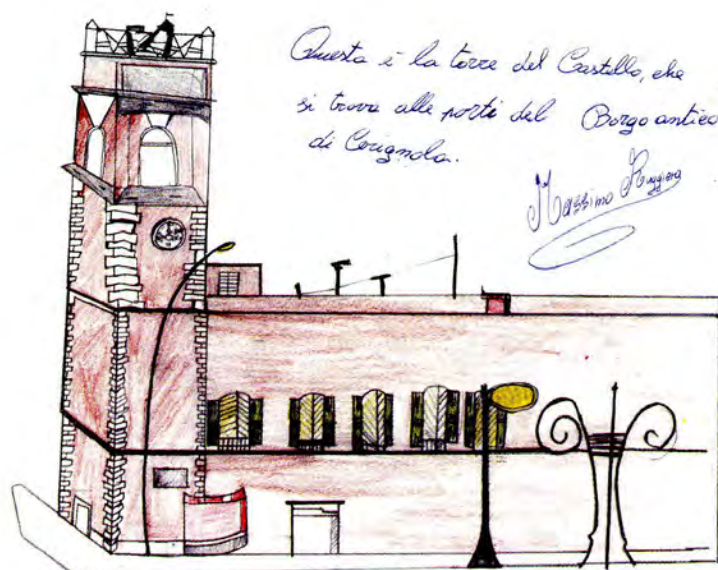 Questa è la torre del Castello, che
si trova alle porti del Borgo antico
di Cerignola.
Massimo Ruggiero